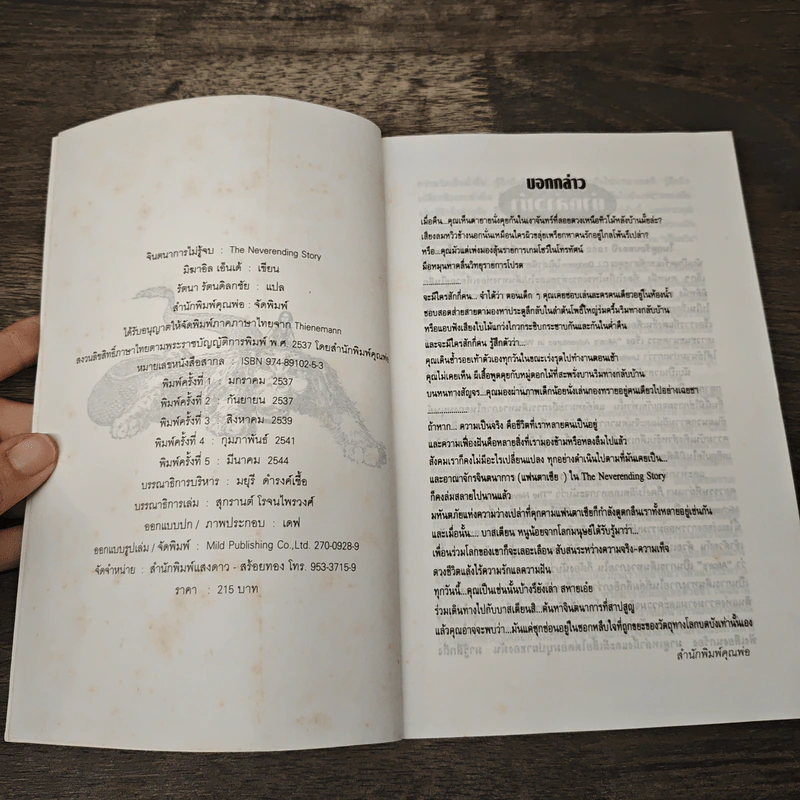 จินตนาการไม่รู้จบ : The Neverending Story
มิฆาอิล เอ็นเด้ : เขียน
รัตนา รัตนดิลกชัย : แปล
สำนักพิมพ์คุณพ่อ : จัดพิมพ์
ได้รับอนุญาตให้จัดพิมพ์ภาคภาษาไทยจาก Thienemann
สงวนลิขสิทธิ์ภาษาไทยตามพระราชบัญญัติการพิมพ์ พ.ศ. 2537 โดยสำนักพิมพ์คุณพ่อ
หมายเลขหนังสือสากล : ISBN 974-89102-5-3
พิมพ์ครั้งที่ 1 : มกราคม 2537
พิมพ์ครั้งที่ 2 : กันยายน 2537
พิมพ์ครั้งที่ 3 : สิงหาคม 2539
พิมพ์ครั้งที่ 4 : กุมภาพันธ์ 2541
พิมพ์ครั้งที่ 5 : มีนาคม 2544
บรรณาธิการบริหาร : มยุรี ดำรงค์เชื้อ
บรรณาธิการเล่ม : สุกรานต์ โรจนไพรวงศ์
ออกแบบปก / ภาพประกอบ : เดฟ
ออกแบบรูปเล่ม / จัดพิมพ์ : Mild Publishing Co.,Ltd. 270-0928-9
จัดจำหน่าย : สำนักพิมพ์แสงดาว - สร้อยทอง โทร. 953-3715-9
ราคา : 215 บาท
บอกกล่าว
เมื่อคืน...คุณเห็นตายายนั่งคุยกันในเงาจันทร์ที่ลอยดวงเหนือทิวไม้หลังบ้านมั้ยล่ะ?
เสียงลมหวิวข้างนอกนั่นเหมือนใครผิวขลุ่ยเพรียกหาคนรักอยู่ไกลโพ้นรึเปล่า?
หรือ...คุณมัวแต่เพ่งมองลุ้นรายการเกมโชว์ในโทรทัศน์
มือหมุนหาคลื่นวิทยุรายการโปรด
....................
จะมีใครสักกี่คน... จำได้ว่า ตอนเด็ก ๆ คุณเคยชอบเล่นละครคนเดียวอยู่ในห้องน้ำ
ชอบสอดส่ายสายตามองหาประตูลึกลับในลำต้นโพธิ์ใหญ่ร่มครึ้มริมทางกลับบ้าน
หรือแอบฟังเสียงใบไผ่แกว่งไกวกระซิบกระซาบกันและกันในค่ำคืน
และจะมีใครสักกี่คน รู้สึกตัวว่า...
คุณเดินซ้ำรอยเท้าตัวเองทุกวันในขณะเร่งรุดไปทำงานตอนเช้า
คุณไม่เคยเห็น ผีเสื้อพูดคุยกับหมู่ดอกไม้ที่สะพรั่งบานริมทางกลับบ้าน
บนหนทางสัญจร...คุณมองผ่านภาพเด็กน้อยนั่งเล่นกองทรายอยู่คนเดียวไปอย่างเฉยชา
....................
ถ้าหาก... ความเป็นจริง คือชีวิตที่เราหลายคนเป็นอยู่
และความเฟื่องฝันคือหลายสิ่งที่เรามองข้ามหรือหลงลืมไปแล้ว
สังคมเราก็คงไม่มีอะไรเปลี่ยนแปลง ทุกอย่างดำเนินไปตามที่มันเคยเป็น...
และอาณาจักรจินตนาการ (แฟนตาเซีย ) ใน The Neverending Story
ก็คงล่มสลายไปนานแล้ว
มหันตภัยแห่งความว่างเปล่าที่คุกคามแฟนตาเซียก็กำลังดูดกลืนเราทั้งหลายอยู่เช่นกัน
และเมื่อนั้น.... บาสเตียน หนูน้อยจากโลกมนุษย์ได้รับรู้มาว่า...
เพื่อนร่วมโลกของเขาก็จะเลอะเลือน สับสนระหว่างความจริง-ความเท็จ
ดวงชีวิตแล้งไร้ความรักแลความฝัน
ทุกวันนี้...คุณเป็นเช่นนั้นบ้างรึยังเล่า สหายเอ๋ย
ร่วมเดินทางไปกับบาสเตียนสิ...ค้นหาจินตนาการที่สาปสูญ
แล้วคุณอาจจะพบว่า...มันแค่ซุกซ่อนอยู่ในซอกหลืบใจที่ถูกขยะของวัตถุทางโลกบดบังเท่านั้นเอง
สำนักพิมพ์คุณพ่อ